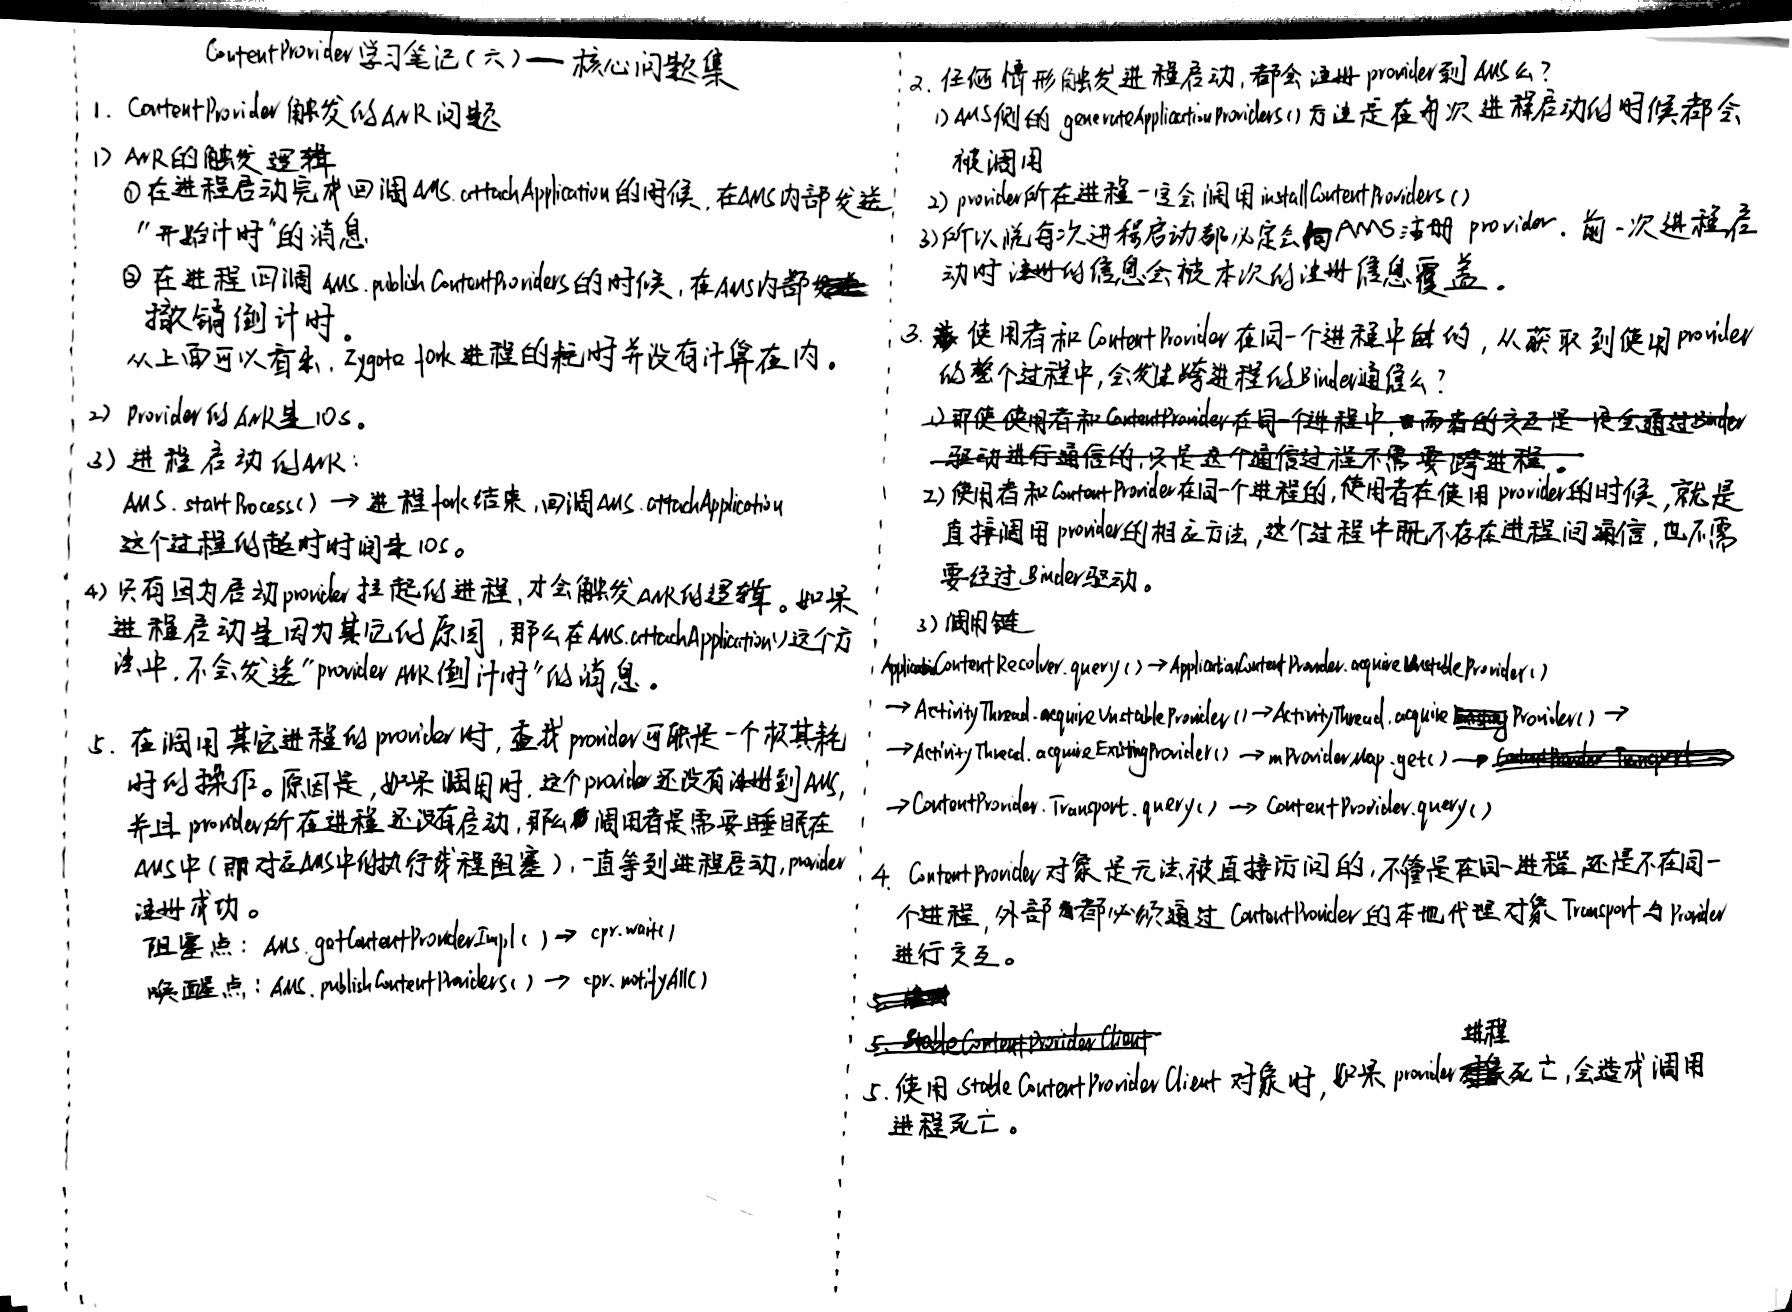 ContentProvider学习笔记(六)—核心问题集
1. ContentProvider触发的ANR问题
1) ANR的触发逻辑
① 在进程启动完成回调AMS.attachApplication的时候,在AMS内部发送
"开始计时"的消息
② 在进程回调AMS.publishContentProviders的时候,在AMS内部
撤销倒计时。
从上面可以看来,Zygote fork进程的耗时并没有计算在内。
2) Provider的ANR是10s。
3) 进程启动的ANR:
AMS.startProcess() → 进程fork结束,回调AMS.attachApplication
这个过程的超时时间是10s。
4) 只有因为启动provider拉起的进程,才会触发ANR的逻辑。如果
进程启动是因为其它的原因,那么在AMS.attachApplication()这个方
法中,不会发送"provider ANR倒计时"的消息。
5. 在调用其它进程的provider时,查找provider可能是一个极其耗
时的操作。原因是,如果调用时,这个provider还没有注册到AMS,
并且provider所在进程还没有启动,那么调用者是需要睡眠在
AMS中(即对应AMS中的执行线程阻塞),一直等到进程启动,provider
注册成功。
阻塞点: AMS.getContentProviderImpl() → cpr.wait()
唤醒点: AMS.publishContentProviders() → cpr.notifyAll()
2. 任何情形触发进程启动,都会注册provider到AMS么?
1) AMS侧的generateApplicationProviders()方法是在每次进程启动的时候都会
被调用
2) provider所在进程一定会调用installContentProviders()
3) 所以说每次进程启动都必定会向AMS注册provider.前一次进程启
动时注册的信息会被本次的注册信息覆盖。
3. 使用者和ContentProvider在同一个进程中时的,从获取到使用provider
的整个过程中,会发生跨进程的Binder通信么?
1) 即使使用者和ContentProvider在同一个进程中,而者的交互是一定会通过Binder
驱动进行通信的,只是这个通信过程不需要跨进程。
2) 使用者和ContentProvider在同一个进程的,使用者在使用provider的时候,就是
直接调用provider的相应方法,这个过程中既不存在进程间通信,也不需
要经过Binder驱动。
3) 调用链
ApplicationContentResolver.query() → ApplicationContentProvider.acquireUnstableProvider()
→ ActivityThread.acquireUnstableProvider() → ActivityThread.acquireProvider() →
→ ActivityThread.acquireExistingProvider() → mProviderMap.get() → ContentProvider Transport
→ ContentProvider.Transport.query() → ContentProvider.query()
4. ContentProvider对象是无法被直接访问的,不管是在同一进程,还是不在同一
个进程,外部都必须通过ContentProvider的本地代理对象Transport与Provider
进行交互。
5. Stable ContentProvider Client
进程
5. 使用Stable ContentProvider Client对象时,如果provider死亡,会造成调用
进程死亡。